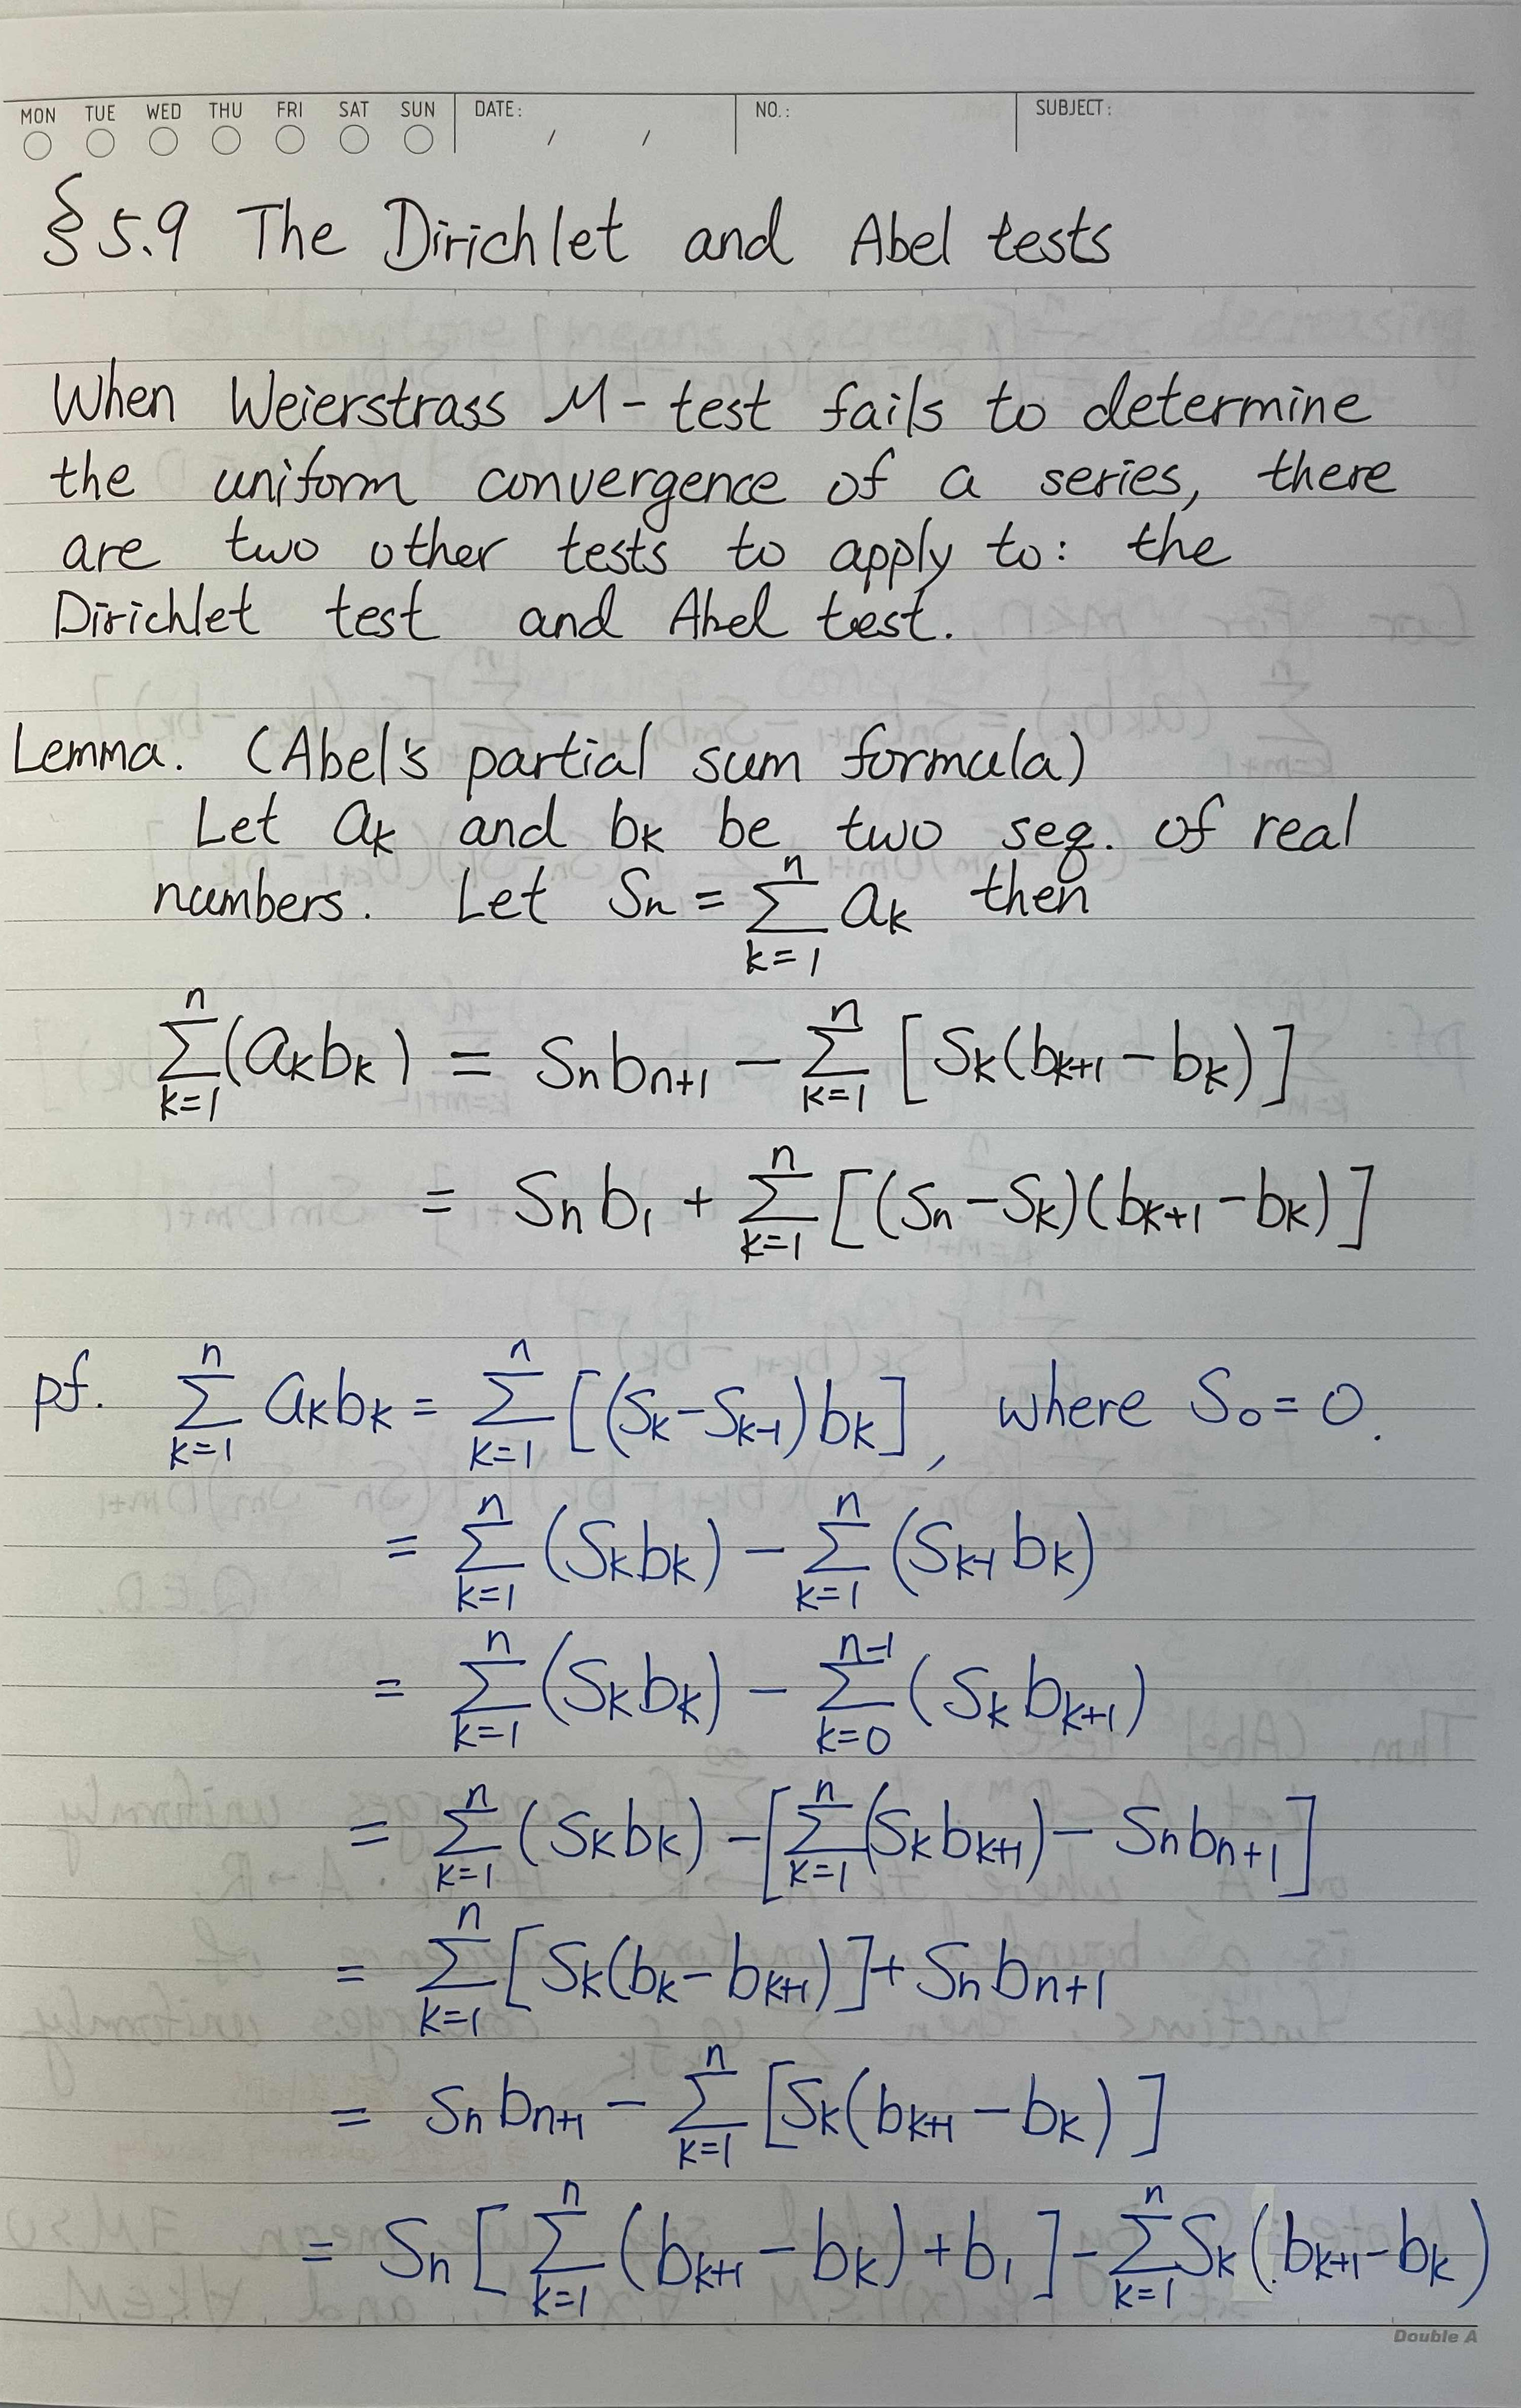 MON TUE WED THU FRI SAT SUN DATE: / / NO.: SUBJECT:
§ 5.9 The Dirichlet and Abel tests
When Weierstrass M-test fails to determine
the uniform convergence of a series, there
are two other tests to apply to: the
Dirichlet test and Abel test.
Lemma. (Abel's partial sum formula)
Let a_k and b_k be two seq. of real
numbers. Let S_n = \sum_{k=1}^{n} a_k then
\sum_{k=1}^{n} (a_k b_k) = S_n b_{n+1} - \sum_{k=1}^{n} [S_k (b_{k+1} - b_k)]
= S_n b_1 + \sum_{k=1}^{n} [(S_n - S_k)(b_{k+1} - b_k)]
pf. \sum_{k=1}^{n} a_k b_k = \sum_{k=1}^{n} [(S_k - S_{k-1}) b_k], where S_0 = 0.
= \sum_{k=1}^{n} (S_k b_k) - \sum_{k=1}^{n} (S_{k-1} b_k)
= \sum_{k=1}^{n} (S_k b_k) - \sum_{k=0}^{n-1} (S_k b_{k+1})
= \sum_{k=1}^{n} (S_k b_k) - [\sum_{k=1}^{n} (S_k b_{k+1}) - S_n b_{n+1}]
= \sum_{k=1}^{n} [S_k (b_k - b_{k+1})] + S_n b_{n+1}
= S_n b_{n+1} - \sum_{k=1}^{n} [S_k (b_{k+1} - b_k)]
= S_n [\sum_{k=1}^{n} (b_{k+1} - b_k) + b_1] - \sum_{k=1}^{n} S_k (b_{k+1} - b_k)
Double A